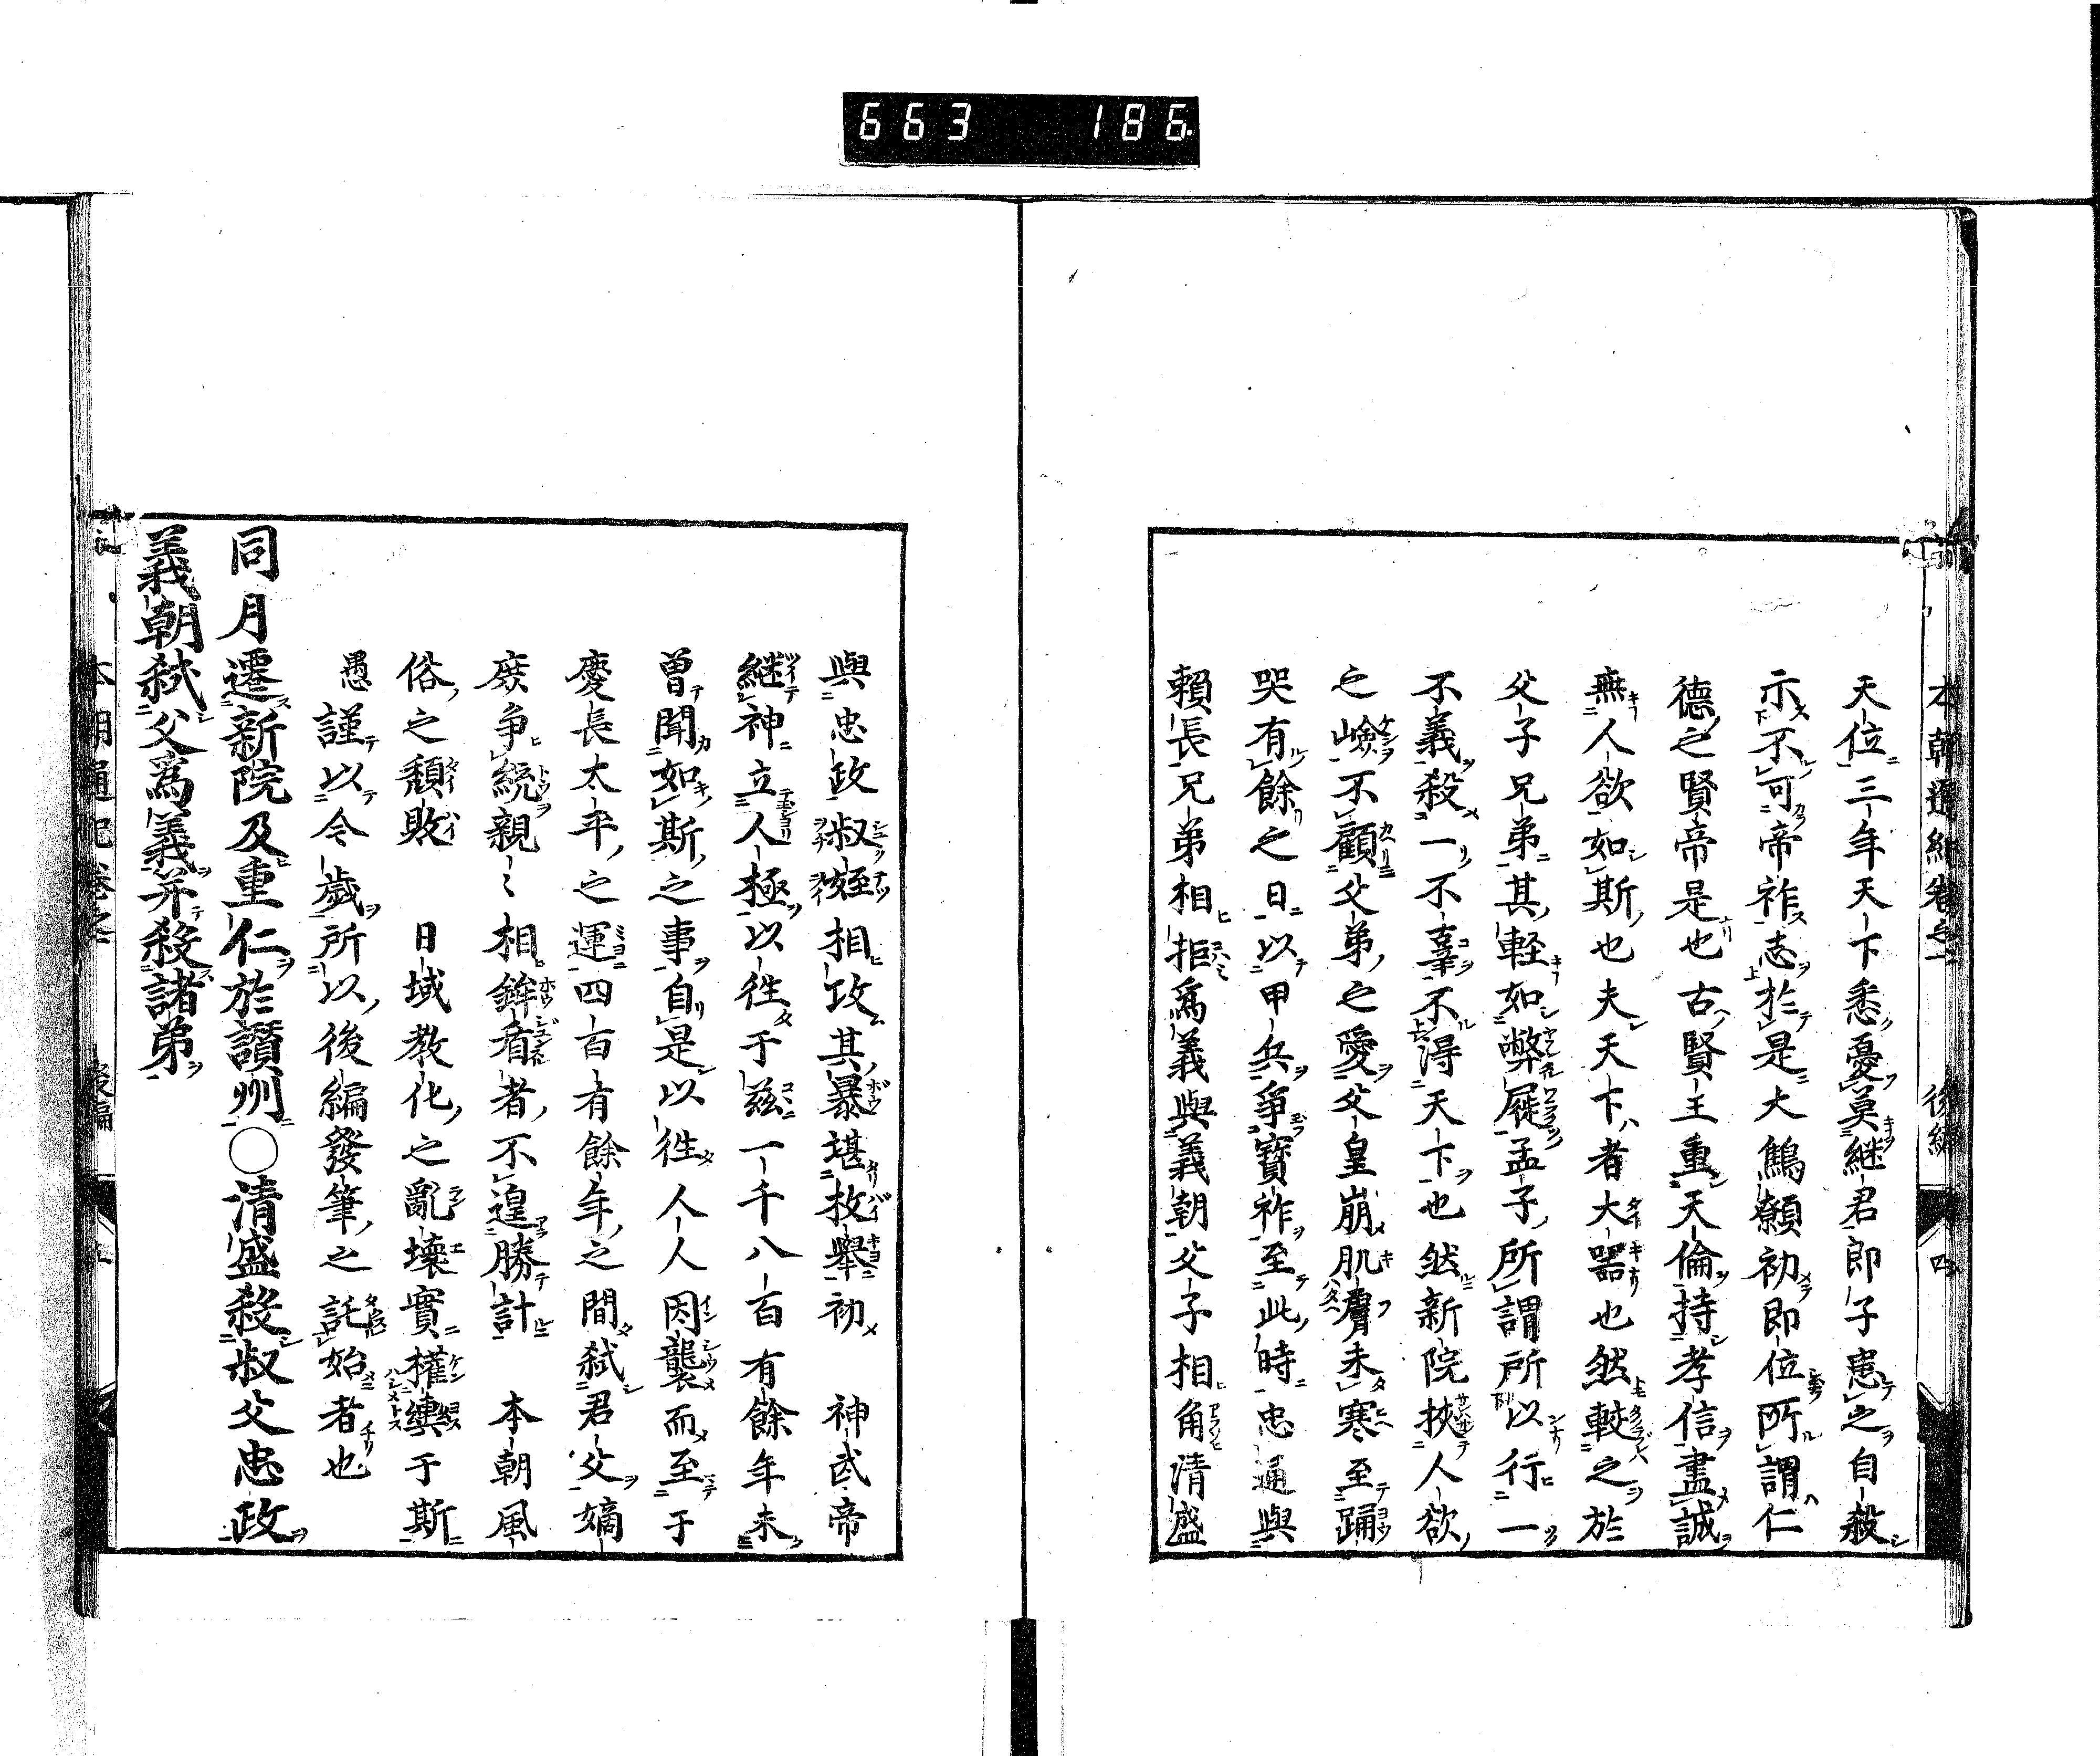 663 186
本朝通紀卷之一 後編 四
天位三年天下悉憂莫継君郎子患之自殺
示不可帝祚志於是大鷦鷯初即位所謂仁
德之賢帝是也古賢王重天倫持孝信盡誠
無人欲如斯也夫天下者大器也然較之於
父子兄弟其輕如弊屣孟子所謂所以行一
不義殺一不辜不得天下也然新院挾人欲
之嶮不顧父弟之愛父皇崩肌膚未寒至踊
哭有餘之日以甲兵爭寶祚至此時忠通與
賴長兄弟相拒爲義與義朝父子相角清盛
與忠政叔姪相攻其暴堪枚舉初 神武帝
継神立人極以徃于茲一千八百有餘年未
曽聞如斯之事自是以徃人人因襲而至于
慶長太平之運四百有餘年之間弑君父嫡
庶争統親〻相鉾看者不遑勝計 本朝風
俗之頽敗 日域教化之亂壊實權輿于斯
愚謹以今歲所以後編發筆之託始者也
同月遷新院及重仁於讃州○清盛殺叔父忠政
義朝弑父爲義并殺諸弟
本朝通紀卷之一 後編